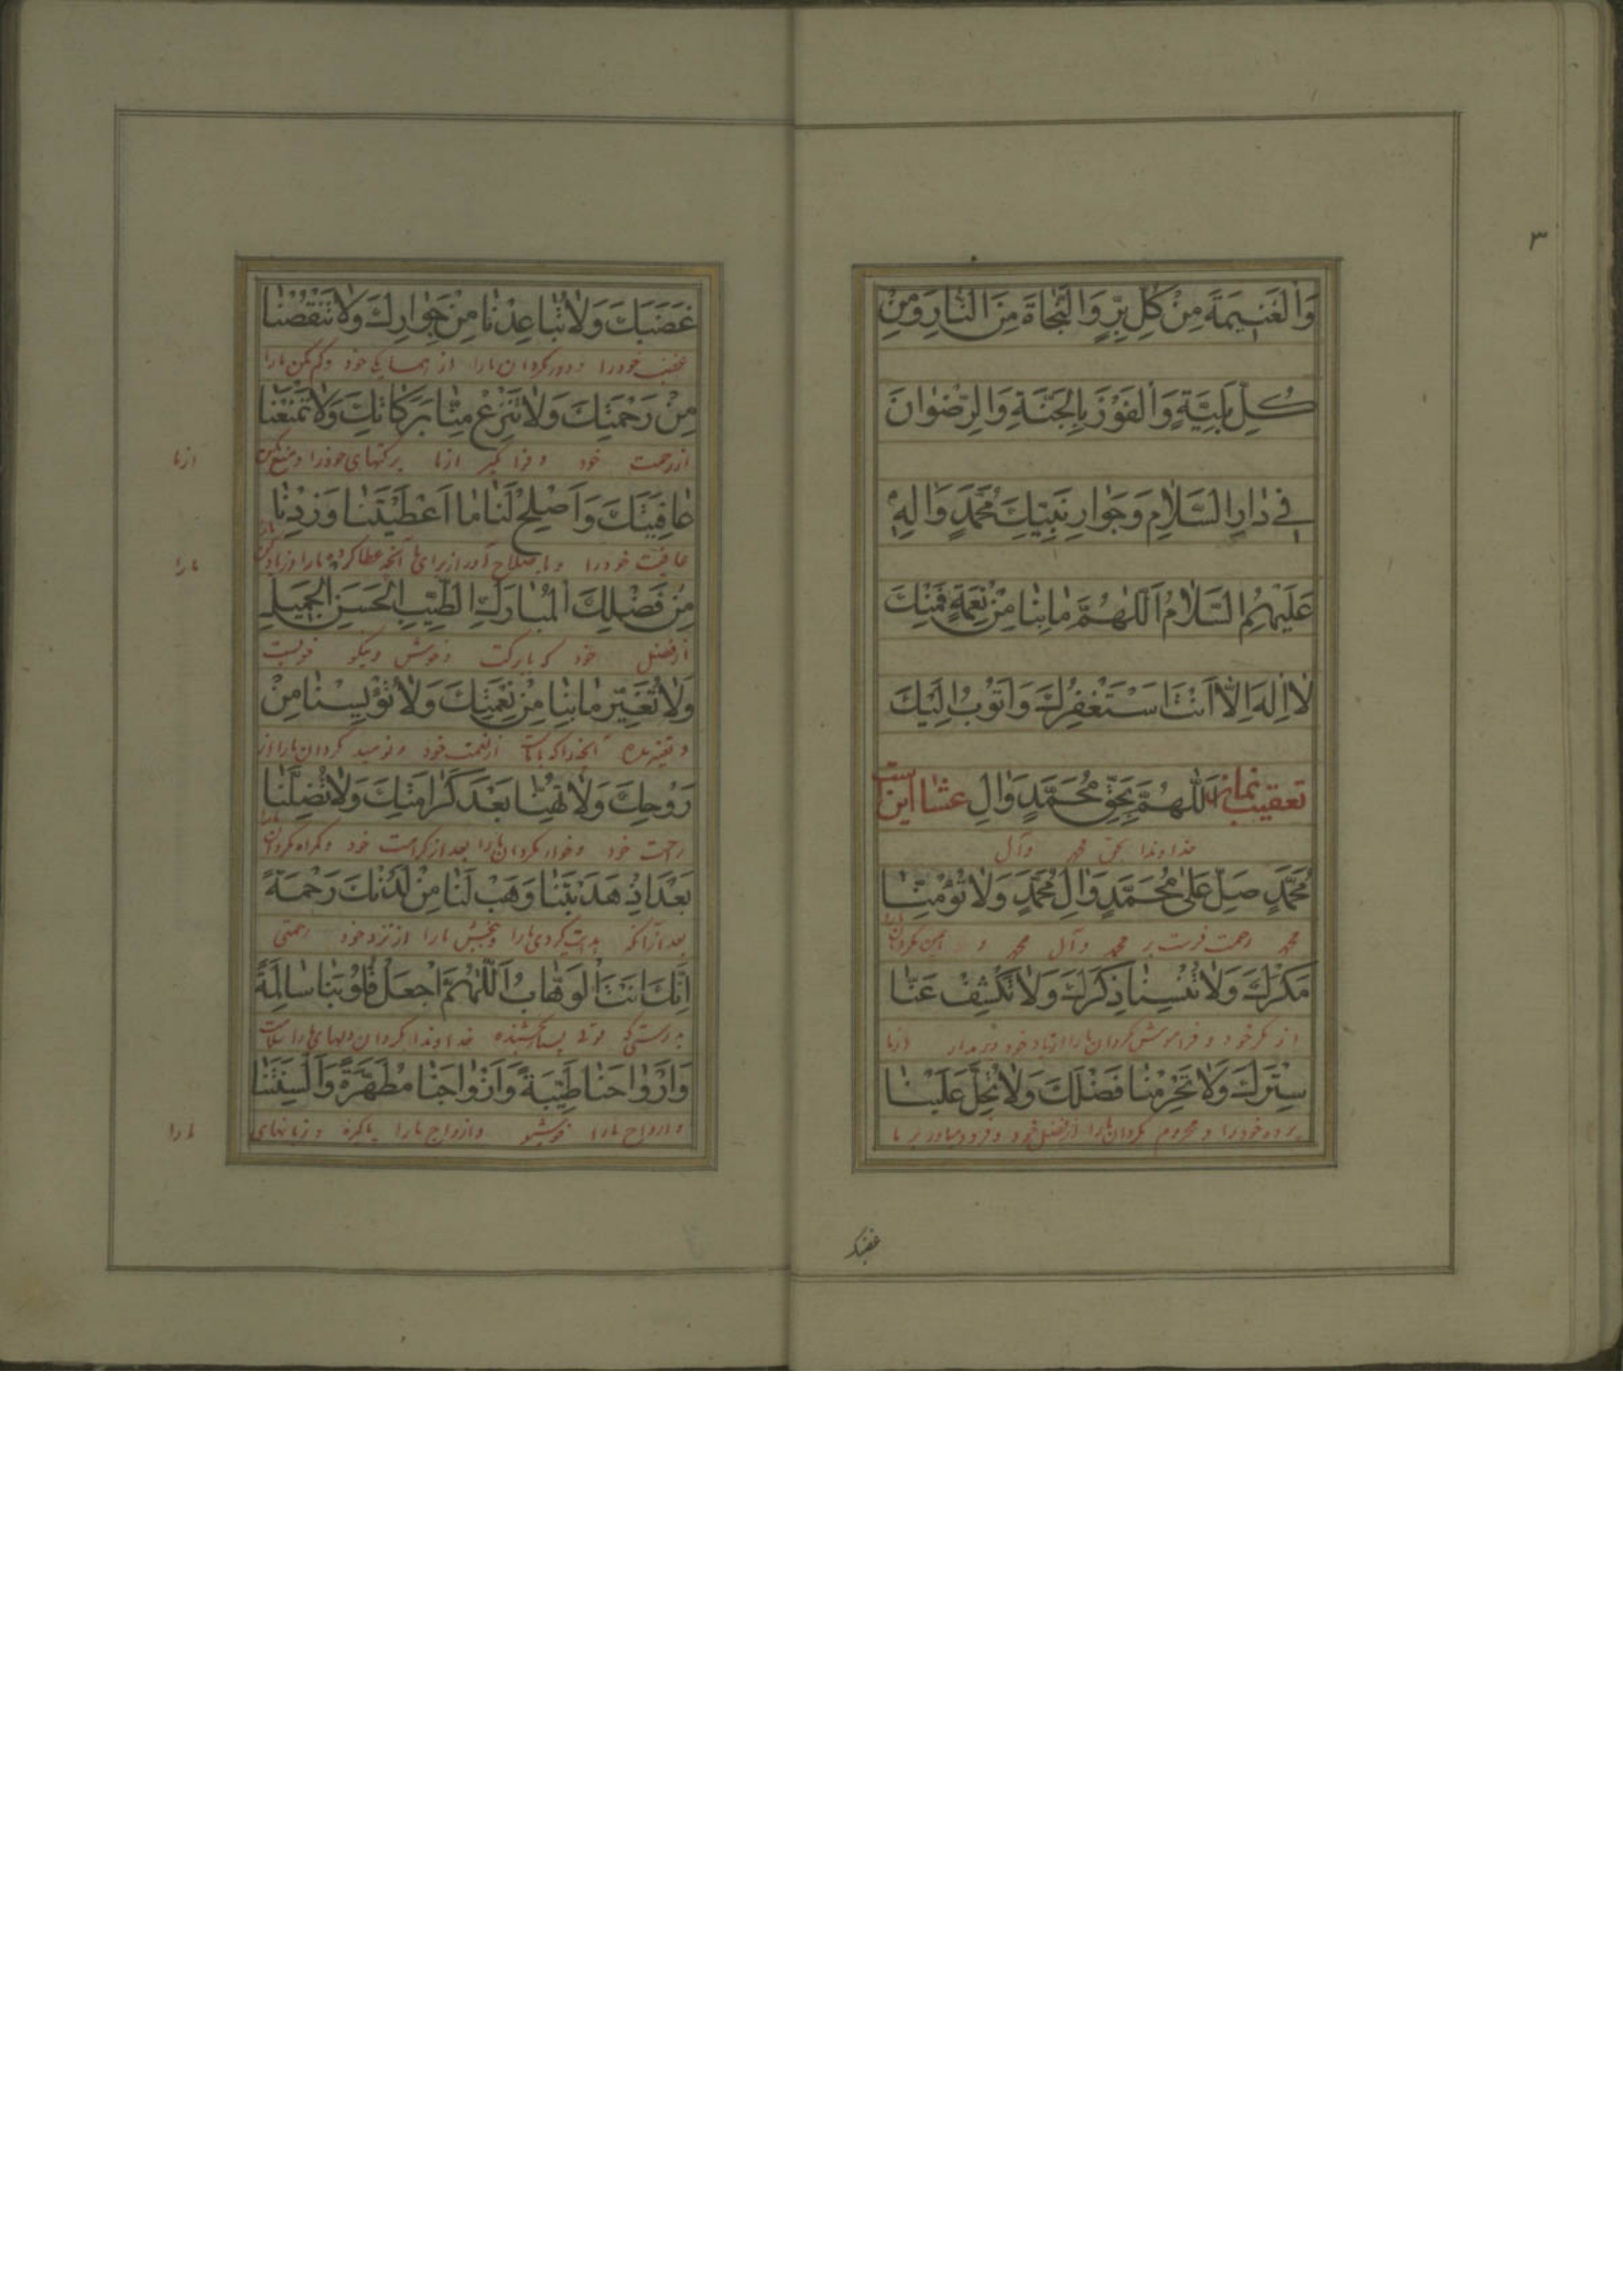 ٣
وَالْغَنيمَةَ مِنْ كُلِّ بِرٍّ وَالنَّجاةَ مِنَ النّارِ وَمِنْ
كُلِّ بَلِيَّةٍ وَالْفَوْزَ بِالْجَنَّةِ وَالرِّضْوانَ
في دارِ السَّلامِ وَجَوارِ نَبِيِّكَ مُحَمَّدٍ وَالِهِ
عَلَيْهِمُ السَّلامُ اَللّهُمَّ مابِنا مِنْ نِعْمَةٍ فَمِنْكَ
لا اِلهَ اِلّا اَنْتَ اَسْتَغْفِرُكَ وَاَتُوبُ اِلَيْكَ
تعقيب نماز عشا اين است اَللّهُمَّ بِحَقِّ مُحَمَّدٍ وَالِ
خداوندا بحق محمد وآل
مُحَمَّدٍ صَلِّ عَلى مُحَمَّدٍ وَالِ مُحَمَّدٍ وَلا تُؤْمِنّا
محمد رحمت فرست بر محمد وآل محمد و ايمن مكردان مارا
مَكْرَكَ وَلا تُنْسِنا ذِكْرَكَ وَلا تَكْشِفْ عَنّا
از مكر خود و فراموش مكردان مارا از ياد خود و برمدار از ما
سِتْرَكَ وَلا تَحْرِمْنا فَضْلَكَ وَلا تُحِلَّ عَلَيْنا
پرده خودرا و محروم مكردان مارا از فضل خود و فرود مياور بر ما
غضبك
غَضَبَكَ وَلا تُباعِدْنا مِنْ جَوارِكَ وَلا تَنْقُصْنا
غضب خودرا و دور مكردان مارا از همسايكى خود وكم مكن مارا
مِنْ رَحْمَتِكَ وَلا تَنْزِعْ مِنّا بَرَكاتِكَ وَلا تَمْنَعْنا
از رحمت خود و فرا مكير از ما بركتهاى خودرا و منع مكن از ما
عافِيَتَكَ وَاَصْلِحْ لَنا ما اَعْطَيْتَنا وَزِدْنا
عافيت خودرا و باصلاح آور از براى ما آنچه عطا كرده مارا و زياد كن مارا
مِنْ فَضْلِكَ الْمُبارَكِ الطَّيِّبِ الْحَسَنِ الْجَميلِ
از فضل خود كه با بركت و خوش و نيكو
وَلا تُغَيِّرْ مابِنا مِنْ نِعْمَتِكَ وَلا تُؤْيِسْنا مِنْ
و تغيير مده آنچه را كه با ماست از نعمت خود و نوميد مكردان مارا از
رَوْحِكَ وَلا تُهِنّا بَعْدَ كَرامَتِكَ وَلا تُضِلَّنا
رحمت خود و خوار مكردان مارا بعد از كرامت خود و كمراه مكردان مارا
بَعْدَ اِذْ هَدَيْتَنا وَهَبْ لَنا مِنْ لَدُنْكَ رَحْمَةً
بعد از آنكه هدايت كردى مارا و ببخش مارا از نزد خود رحمتى
اِنَّكَ اَنْتَ الْوَهّابُ اَللّهُمَّ اجْعَلْ قُلُوبَنا سالِمَةً
بدرستى كه توئى بسيار بخشنده خداوندا بكردان دلهاى مارا سلامت
وَاَرْواحَنا طَيِّبَةً وَاَزْواجَنا مُطَهَّرَةً وَاَلْسِنَتَنا
و ارواح مارا خوشبو و ازواج مارا پاكيزه و زبانهاى مارا